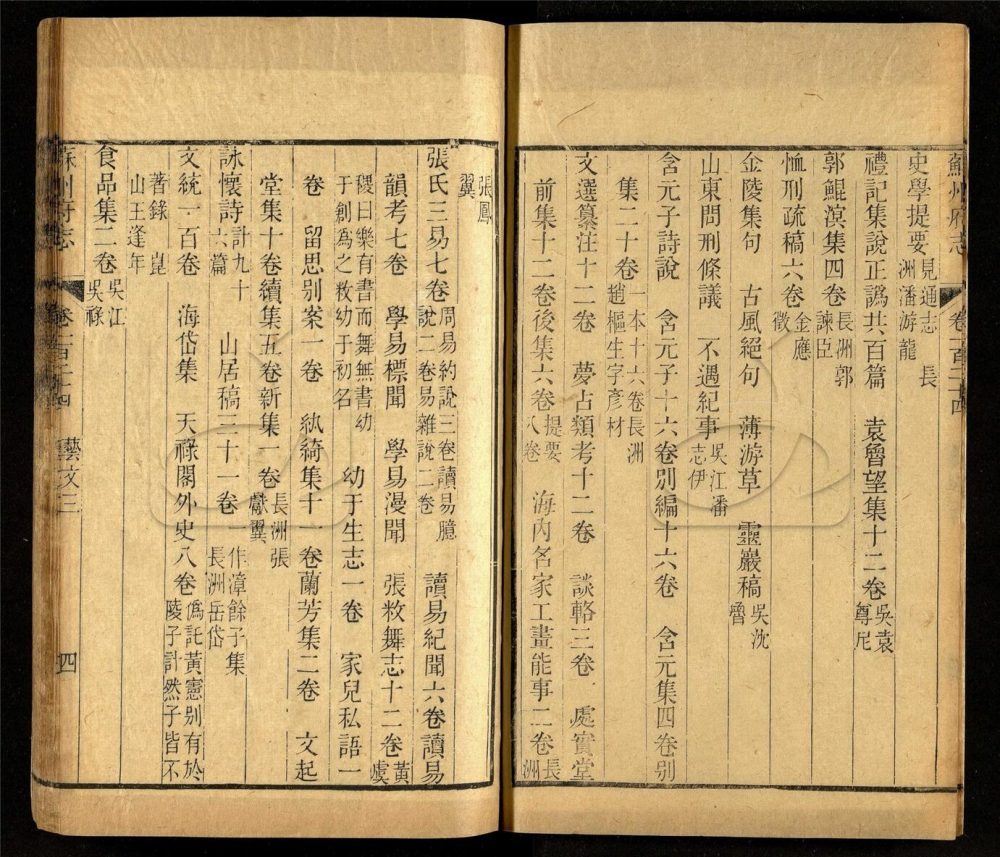 蘇州府志 卷一百二十四
史學提要見通志 長洲潘游龍
禮記集說正譌共百篇 袁魯望集十二卷吳袁尊尼
郭鯤溟集四卷長洲郭諫臣
恤刑疏稿六卷金應徵
金陵集句 古風絕句 薄游草 靈巖稿吳沈魯
山東問刑條議 不遇紀事吳江潘志伊
含元子詩說 含元子十六卷別編十六卷 含元集四卷別
集二十卷一本十六卷長洲趙樞生字彥材
文選纂注十二卷 夢占類考十二卷 談輅三卷 處實堂
前集十二卷後集六卷提要八卷 海內名家工畫能事二卷長洲
張鳳翼
張氏三易七卷周易約說三卷讀易臆說二卷易雜說二卷 讀易紀聞六卷讀易
韻考七卷 學易標聞 學易漫聞 張敉舞志十二卷黃虞
稷曰樂有書而舞無書幼于創為之敉幼于初名 幼于生志一卷 家兒私語一
卷 留思別案一卷 紈綺集十一卷蘭芳集二卷 文起
堂集十卷續集五卷新集一卷長洲張獻翼
詠懷詩計九十六篇 山居稿三十一卷一作漳餘子集長洲岳岱
文統一百卷 海岱集 天祿閣外史八卷偽託黃憲別有於陵子計然子皆不
著錄崑山王逢年
食品集二卷吳江吳祿
蘇州府志 卷一百二十四 藝文三 四